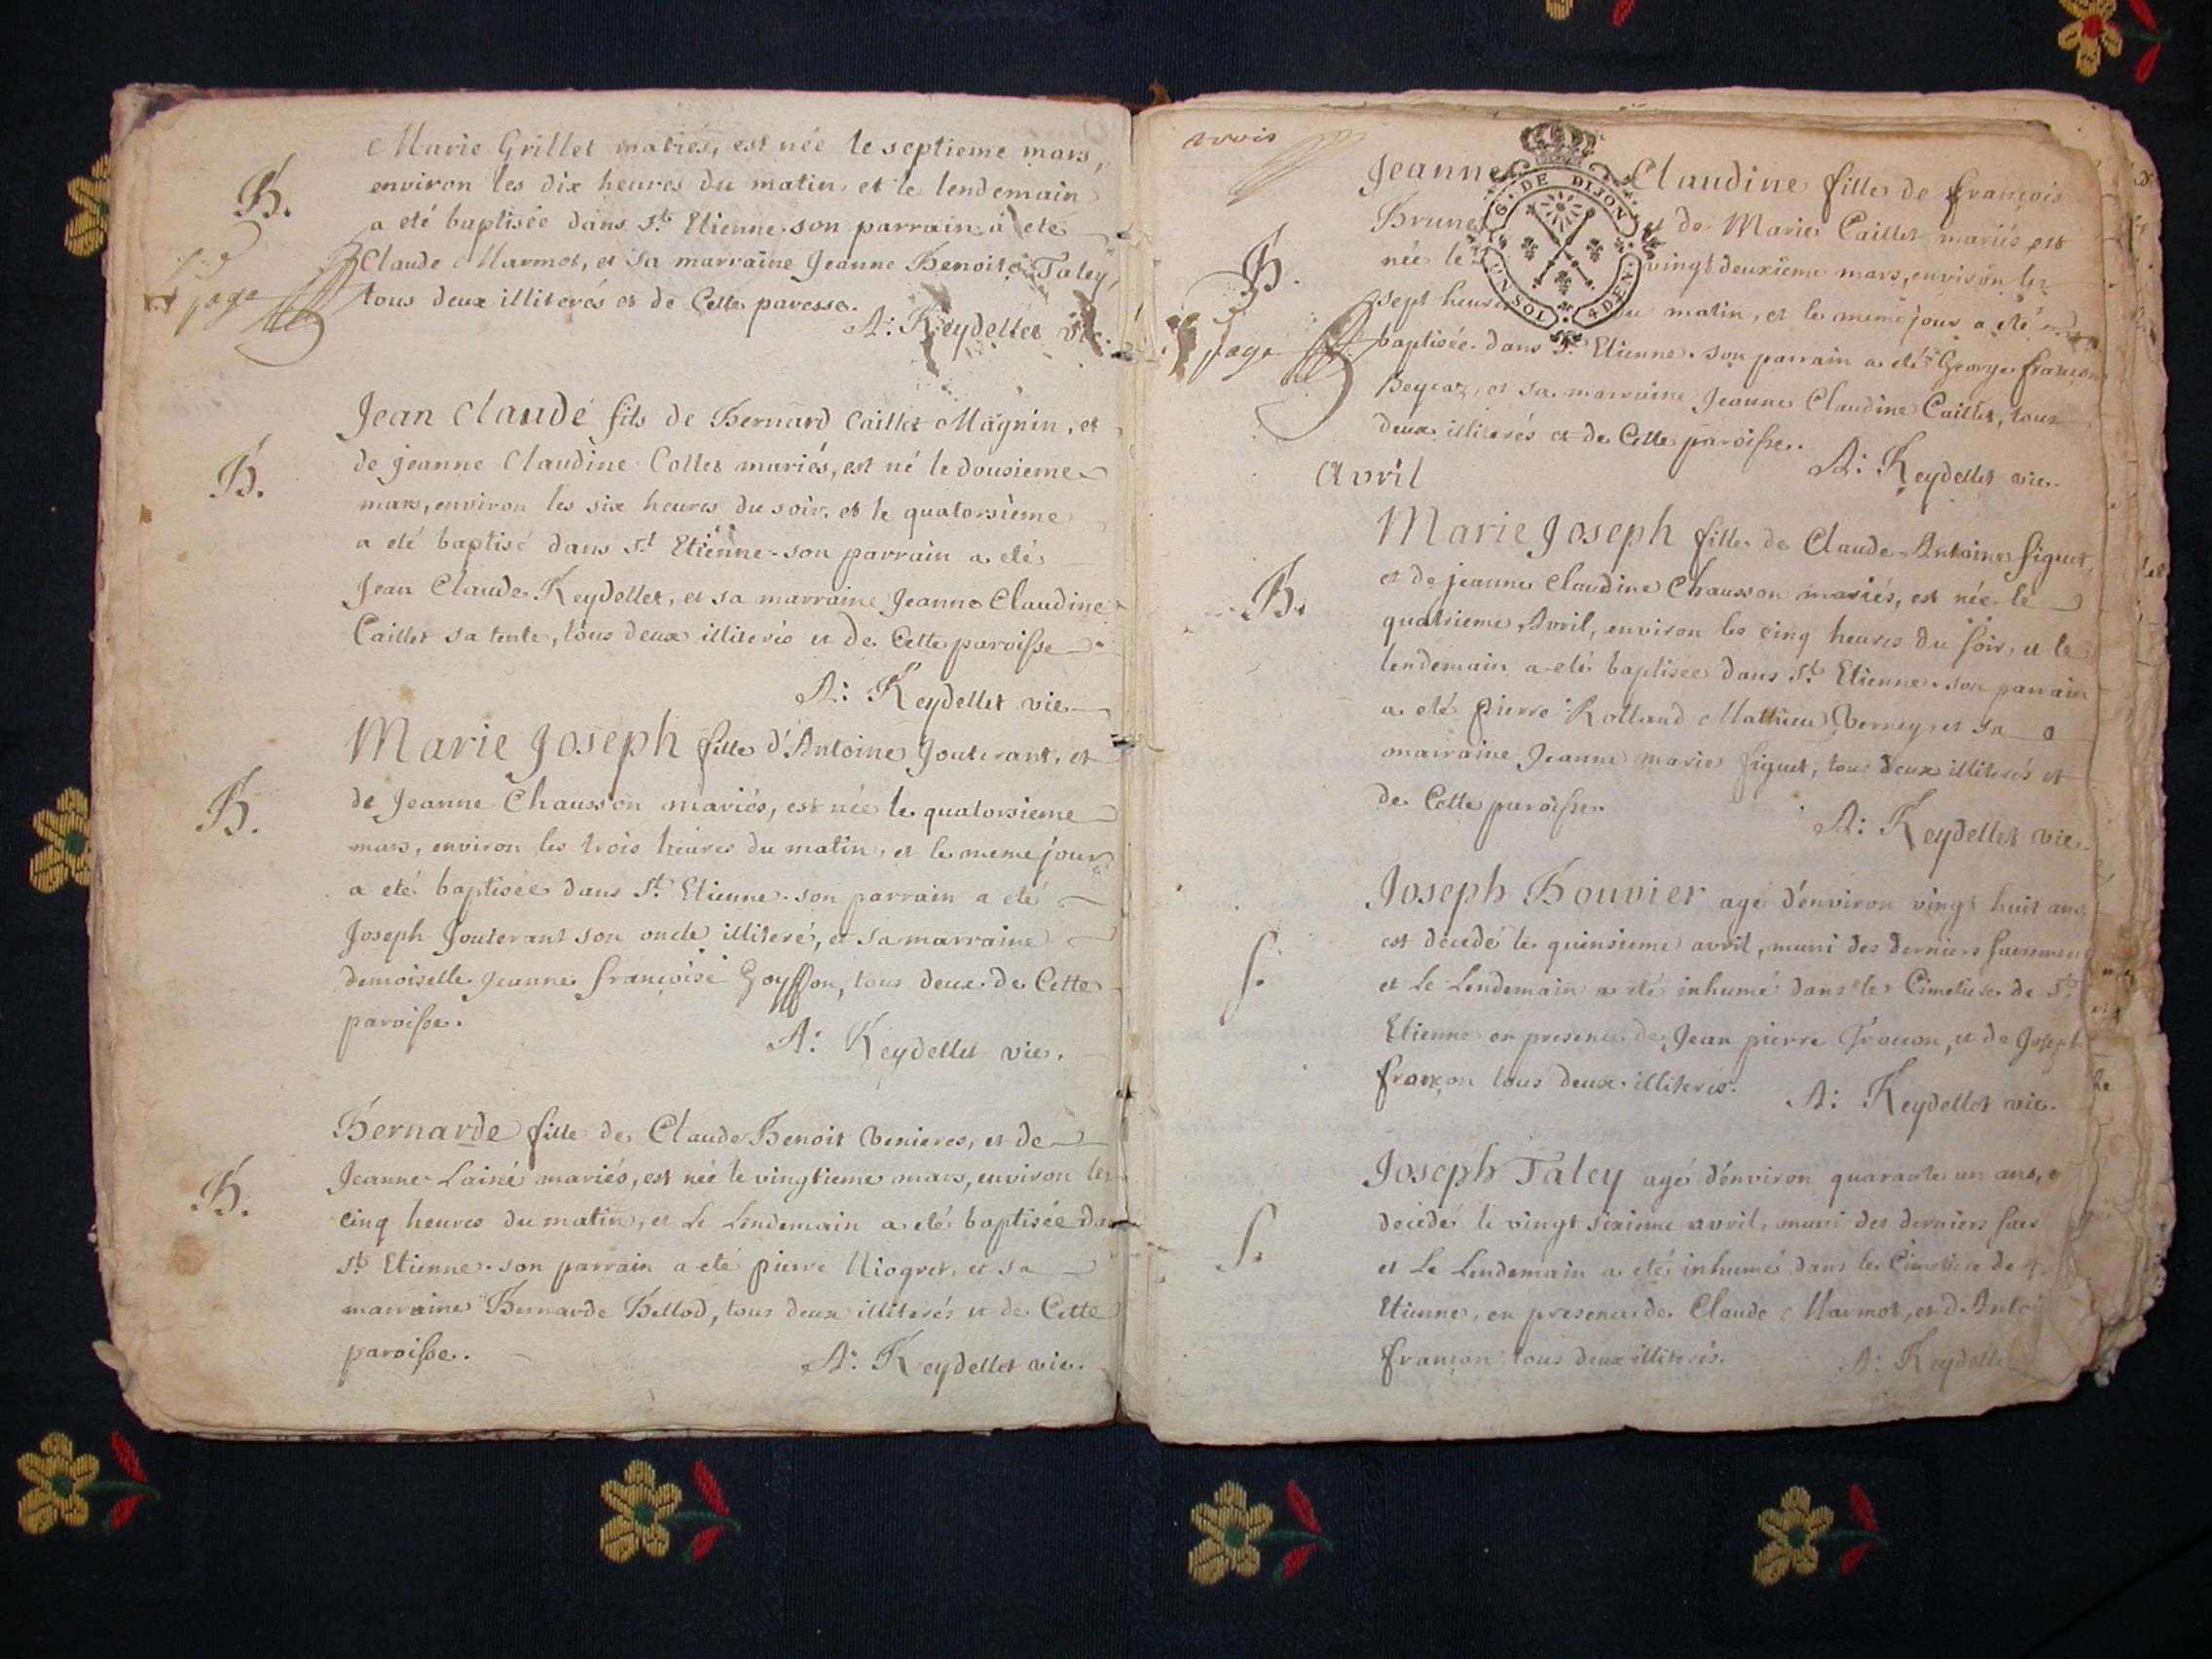 Marie Grillet mariés, est née le septieme mars,
environ les dix heures du matin, et le lendemain
B.
a eté baptisée dans St Etienne. son parrain a eté
Claude Marmot, et sa marraine Jeanne Benoite Taley,
page
tous deux illiterés et de Cette paroesse.
A: Keydellet vic.
Jean Claude fils de Bernard Caillet Magnin, et
de Jeanne Claudine Collet mariés, est né le dousieme
B.
mars, environ les six heures du soir, et le quatorsieme
a eté baptisé dans St Etienne. son parrain a eté
Jean Claude Keydellet, et sa marraine Jeanne Claudine
Caillet sa tente, tous deux illiterés et de Cette paroisse
A: Keydellet vic
Marie Joseph fille d'Antoine Jouterant, et
B.
de Jeanne Chausson mariés, est née le quatorsieme
mars, environ les trois heures du matin, et le meme jour
a eté baptisée dans St Etienne. son parrain a eté
Joseph Jouterant son oncle illiteré, et sa marraine
demoiselle Jeanne françoise Goyffon, tous deux de Cette
paroisse.
A: Keydellet vic.
Bernarde fille de Claude Benoit Venieres, et de
B.
Jeanne Lainé mariés, est née le vingtieme mars, environ les
cinq heures du matin, et Le Lendemain a eté baptisée
St Etienne. son parrain a eté pierre Niogret, et sa
marraine Bernarde Bellod, tous deux illiterés et de Cette
paroisse.
A: Keydellet vic.
trois
G. DE DIJON
UN SOL 4 DEN.
Jeanne Claudine fille de françois
Brunet et de Marie Caillet mariés, est
B.
née le vingt deuxieme mars, environ les
sept heures du matin, et le meme jour a eté
page
baptisée dans St Etienne. son parrain a eté George françon
Beycaz, et sa marraine Jeanne Claudine Caillet, tous
deux illiterés et de Cette paroisse.
A: Keydellet vic.
Avril
Marie Joseph fille de Claude Antoine figuet,
B.
et de jeanne Claudine Chausson mariés, est née le
quatrieme Avril, environ les cinq heures du soir, et le
lendemain a eté baptisée dans St Etienne. son parrain
a eté pierre Rolland Mathieu Verney, et sa
marraine Jeanne marie figuet, tous deux illiterés et
de Cette paroisse.
A: Keydellet vic.
Joseph Bouvier agé d'environ vingt huit ans
S.
est decedé le quinsieme avril, muni des derniers sacremens
et Le Lendemain a eté inhumé dans le Cimetiere de St
Etienne en presence de Jean pierre françon, et de Joseph
françon tous deux illiterés.
A: Keydellet vic.
Joseph Taley agé d'environ quarante un ans,
S.
decedé le vingt sixieme avril, muni des derniers sacr
et Le Lendemain a eté inhumé dans le Cimetiere de
Etienne, en presence de Claude Marmot, et d'Antoi
françon tous deux illiterés.
A: Keydelle